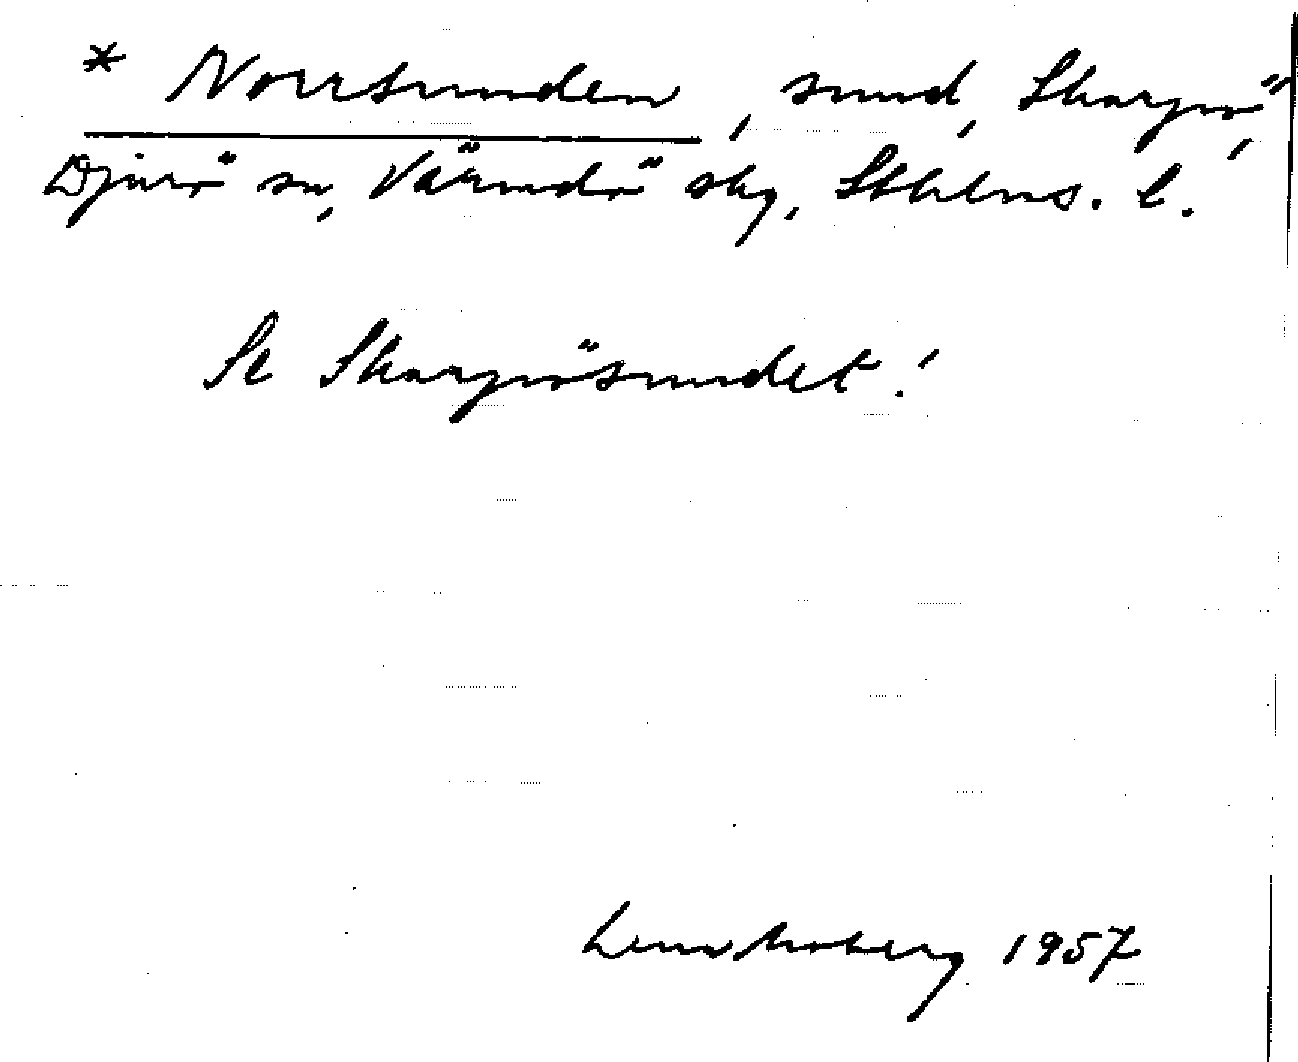 * Norrsunden, sund, Skarpö,
Djurö sn, Värmdö skg, Sthlms. l.
Se Skarpösundet!
Lena Moberg 1957